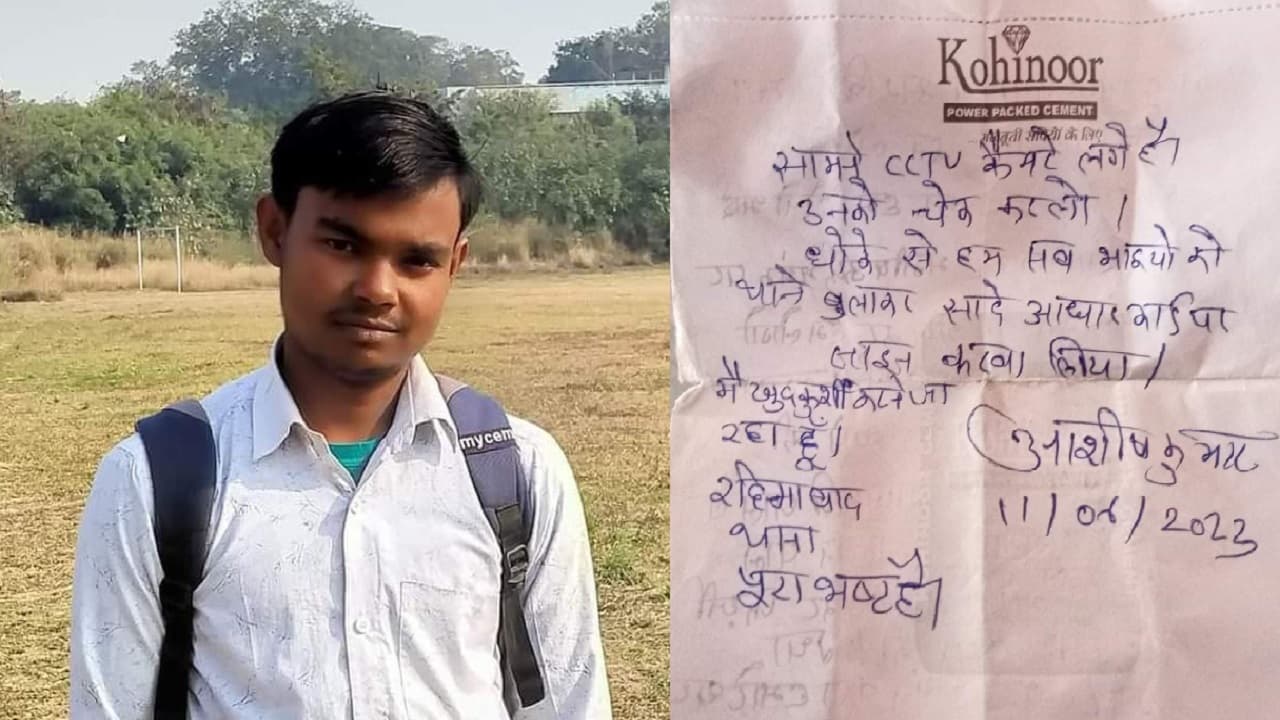 mycem
Kohinoor
POWER PACKED CEMENT
मजबूती सदियों के लिए
सामने CCTV कैमरे लगे है।
उनको चेक करलो।
धोके से हम सब भाइयो को
थाने बुलाकर सादे आधार कार्ड पर
साइन करवा लिया।
मै खुदकुशी करने जा
रहा हूँ।
आशीष कुमार
रहिमाबाद
11/04/2023
थाना
पूरा भ्रष्ट है।